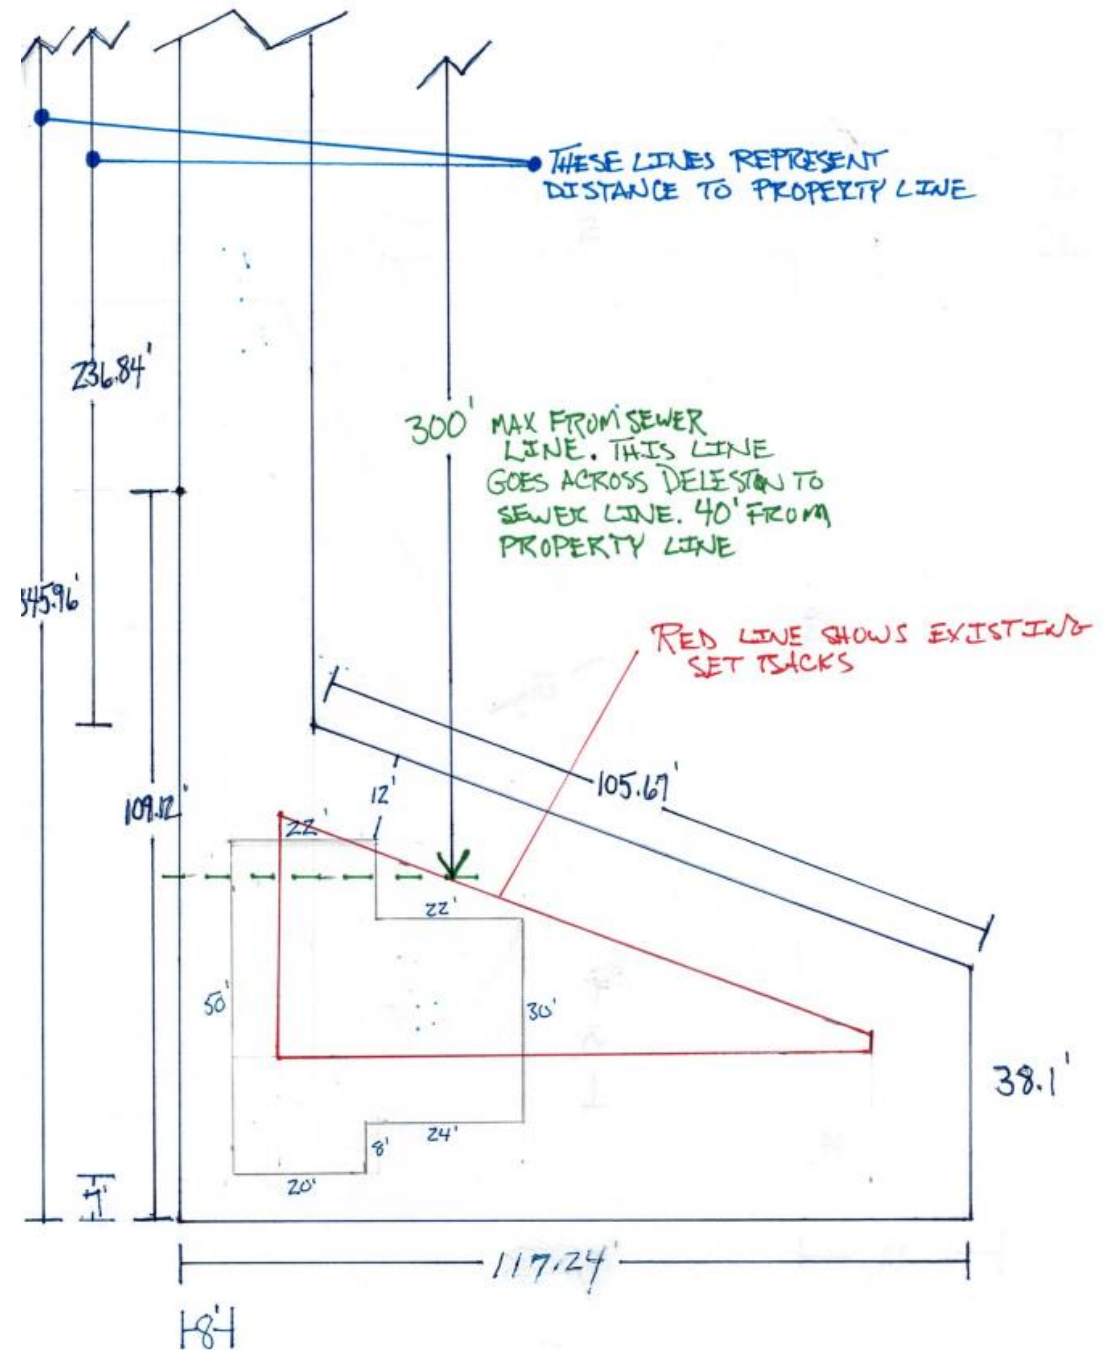 THESE LINES REPRESENT
DISTANCE TO PROPERTY LINE
236.84'
300' MAX FROM SEWER
LINE. THIS LINE
GOES ACROSS DELESTON TO
SEWER LINE. 40' FROM
PROPERTY LINE
345.96'
RED LINE SHOWS EXISTING
SET BACKS
105.67'
12'
109.12'
22'
22'
50'
30'
38.1'
24'
8'
20'
7'
117.24'
8'